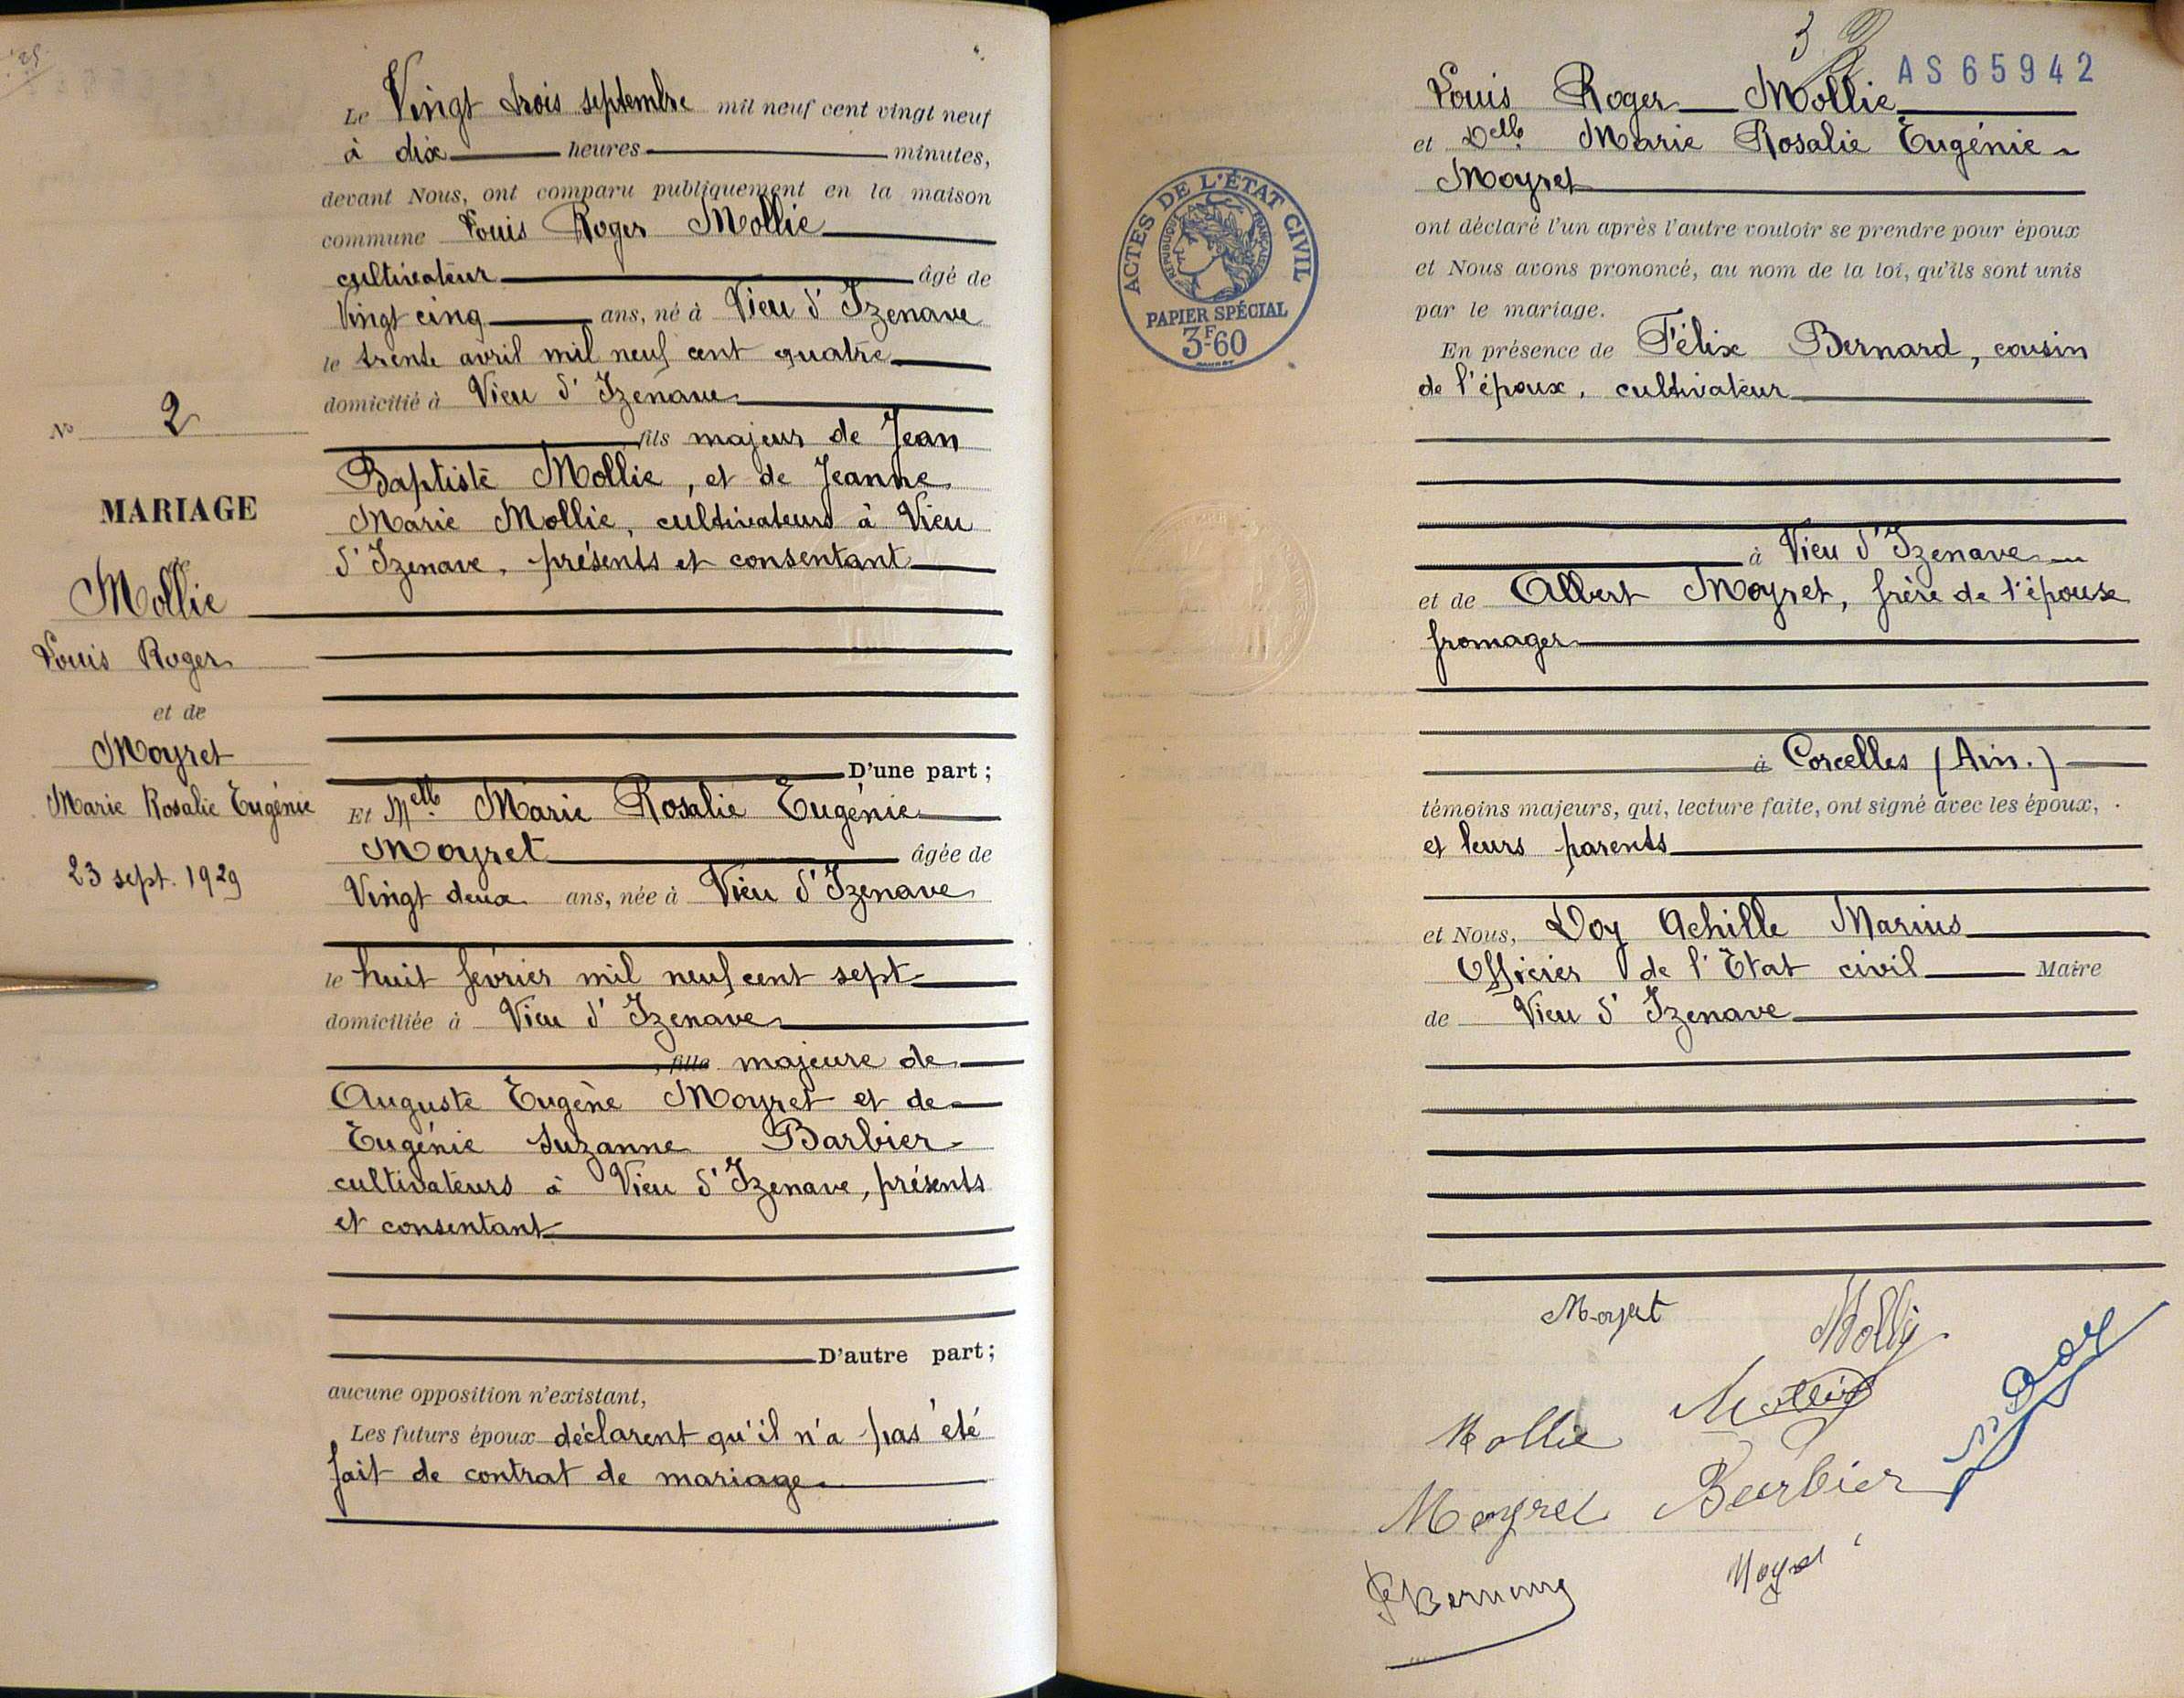 N° 2
MARIAGE
Mollie
Louis Roger
et de
Moyret
Marie Rosalie Eugénie
23 sept. 1929
Le Vingt trois septembre mil neuf cent vingt neuf
à dix heures minutes,
devant Nous, ont comparu publiquement en la maison
commune Louis Roger Mollie
cultivateur âgé de
Vingt cinq ans, né à Vieu d'Izenave
le trente avril mil neuf cent quatre
domicilié à Vieu d'Izenave
fils majeur de Jean
Baptiste Mollie, et de Jeanne
Marie Mollie, cultivateurs à Vieu
d'Izenave, présents et consentant
D'une part ;
Et Melle Marie Rosalie Eugénie
Moyret âgée de
Vingt deux ans, née à Vieu d'Izenave
le huit février mil neuf cent sept
domiciliée à Vieu d'Izenave
, fille majeure de
Auguste Eugène Moyret et de
Eugénie Suzanne Barbier
cultivateurs à Vieu d'Izenave, présents
et consentant
D'autre part ;
aucune opposition n'existant,
Les futurs époux déclarent qu'il n'a pas été
fait de contrat de mariage.
3
AS65942
ACTES DE L'ÉTAT CIVIL
RÉPUBLIQUE FRANÇAISE
PAPIER SPÉCIAL
3F60
Louis Roger Mollie
et Delle Marie Rosalie Eugénie
Moyret
ont déclaré l'un après l'autre vouloir se prendre pour époux
et Nous avons prononcé, au nom de la loi, qu'ils sont unis
par le mariage.
En présence de Félix Bernard, cousin
de l'époux, cultivateur
à Vieu d'Izenave
et de Albert Moyret, frère de l'épouse
fromager
à Corcelles (Ain.)
témoins majeurs, qui, lecture faite, ont signé avec les époux,
et leurs parents
et Nous, Doy Achille Marius
Officier de l'Etat civil Maire
de Vieu d'Izenave
Moyret
Molly
Mollie
Mollie
Doy
Moyret
Barbier
F Bernard
Moyret